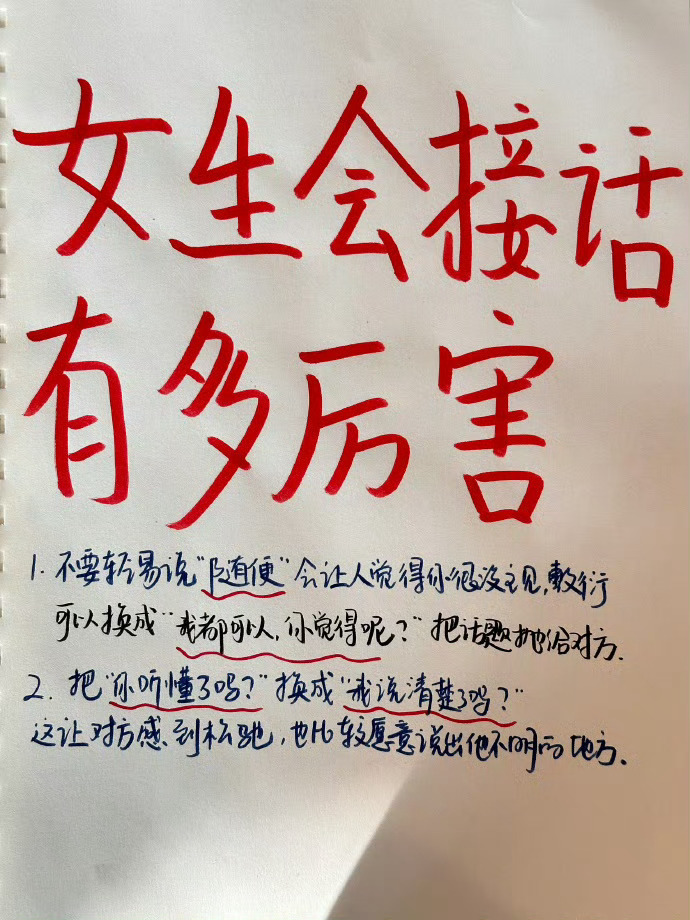 女生会接话
有多厉害
1. 不要轻易说“随便”会让人觉得你很没主见,敷衍
可以换成“我都可以,你觉得呢?”把话题抛给对方.
2. 把“你听懂了吗?”换成“我说清楚了吗?”
这让对方感到松驰,也比较愿意说出他不明的地方.